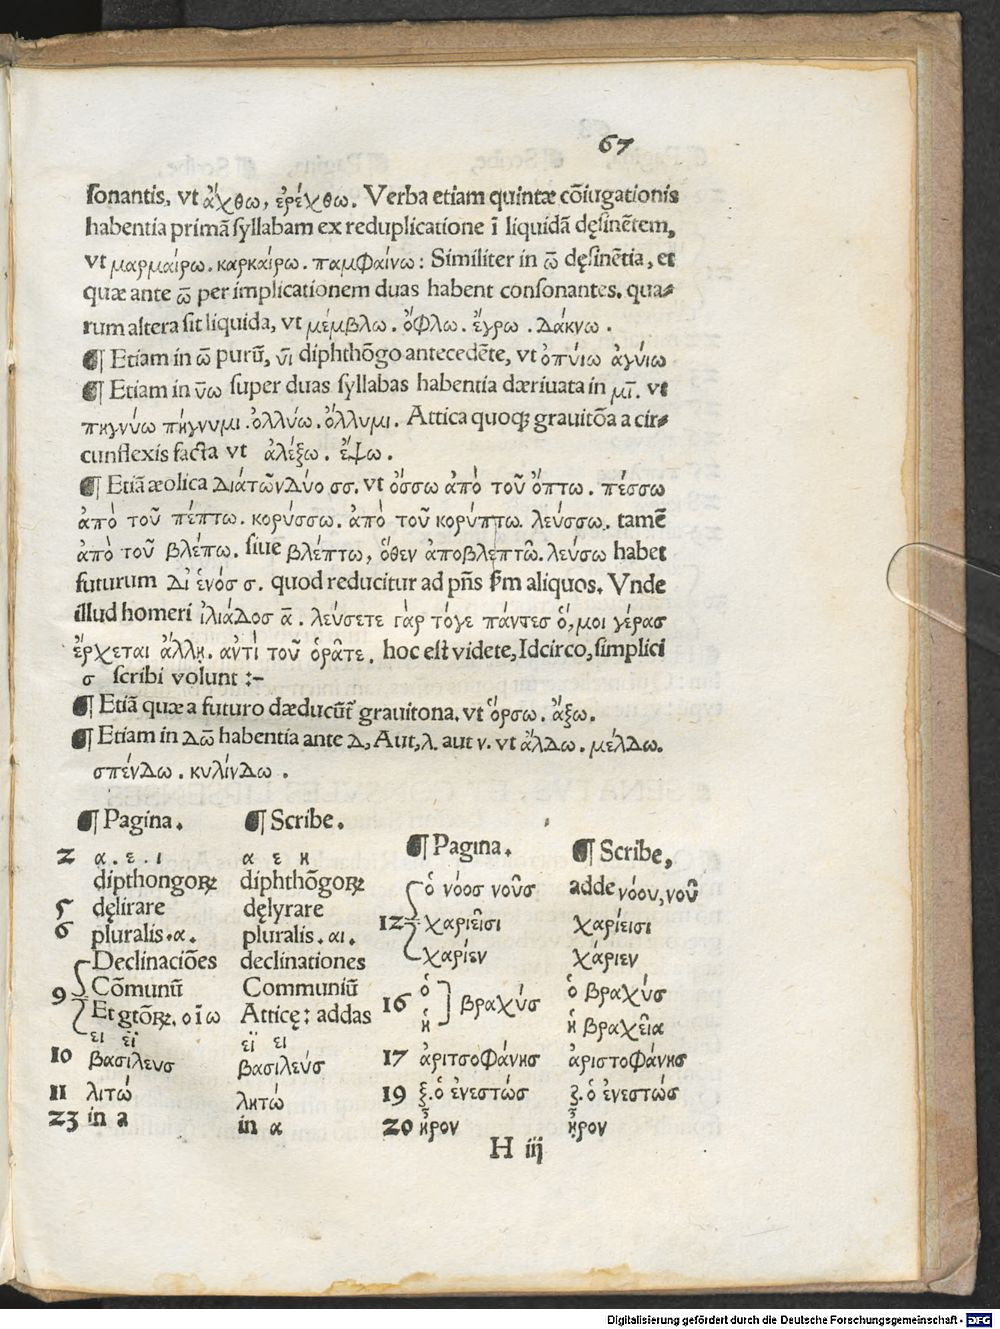 67
sonantis, vt ἄχθω, ἐρέχθω. Verba etiam quintæ cōiugationis
habentia primā syllabam ex reduplicatione ī liquidā dęsinētem,
vt μαρμαίρω. καρκαίρω. παμφαίνω: Similiter in ω̄ dęsinētia, et
quæ ante ω̄ per implicationem duas habent consonantes. qua-
rum altera sit liquida, vt μέμβλω. ὄφλω. ἔγρω. Δάκνω.
¶ Etiam in ω̄ purū, v̄ι diphthōgo antecedēte, vt ὀπύιω ἀγύιω
¶ Etiam in ῡω super duas syllabas habentia dæriuata in μῑ. vt
πηγνύω πήγνυμι. ὀλλύω. ὄλλυμι. Attica quoqꝫ grauitōa a cir-
cunflexis facta vt ἀλέξω. ἕψω.
¶ Etiā æolica ΔιάτῶνΔύο σσ. vt ὄσσω ἀπὸ τοῦ ὄπτω. πέσσω
ἀπὸ τοῦ πέπτω. κορύσσω. ἀπὸ τοῦ κορύπτω. λεύσσω. tamē
ἀπὸ τοῦ βλέπω. siue βλέπτω, ὅθεν ἀποβλεπτῶ. λεύσω habet
futurum Δι ἑνόσ σ. quod reducitur ad pn̄s ẜm aliquos. Vnde
illud homeri ἰλιάΔοσ ᾱ. λεύσετε γὰρ τόγε πάντεσ ὅ, μοι γέρασ
ἔρχεται ἄλλῃ. ἀντὶ τοῦ ὁρᾶτε. hoc est videte, Idcirco, simplici
σ scribi volunt :-
¶ Etiā quæ a futuro dæducūt᷑ grauitona. vt ὄρσω. ἄξω.
¶ Etiam in Δω̄ habentia ante Δ, Aut, λ. aut ν. vt ἄλΔω. μέλΔω.
σπένΔω. κυλίνΔω.
¶ Pagina. ¶ Scribe.
2 α. ε. ι α ε η
dipthongoꝝ diphthōgoꝝ
5 dęlirare dęlyrare
6 pluralis. α. pluralis. αι.
Declinaciōes declinationes
9 Cōmunū Communiū
Et gtōꝝ. οἵω Atticę: addas
ει εϊ εϊ ει
10 βασιλευσ βασιλεύσ
11 λιτώ λητώ
23 in a in α
¶ Pagina. ¶ Scribe,
ὁ νόοσ νοῦσ adde νόου, νοῦ
12 χαριεῖσι χαρίεισι
χαρίεν χάριεν
16 ὁ ἡ βραχύσ ὁ βραχύσ
ἡ βραχεῖα
17 ἀριτσοφάνησ ἀριστοφάνησ
19 ξ. ὁ ἐνεστώσ ζ. ὁ ἐνεστώσ
20 ἦρον ᾖρον
H iij
Digitalisierung gefördert durch die Deutsche Forschungsgemeinschaft - DFG